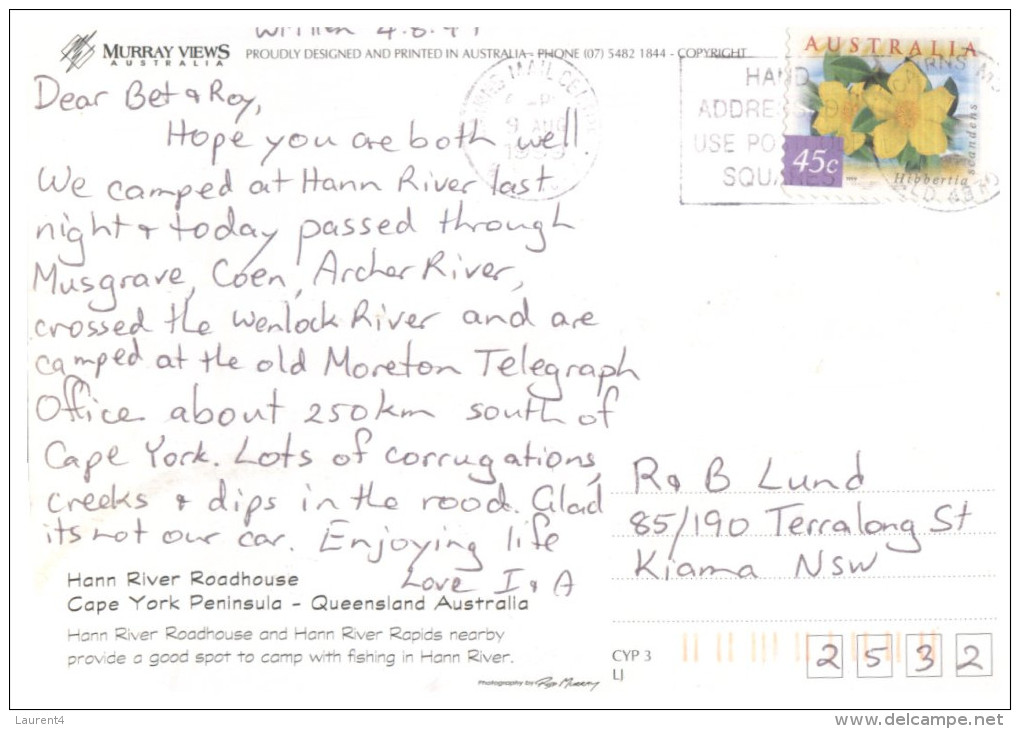 written 4.8.99
MURRAY VIEWS
AUSTRALIA
PROUDLY DESIGNED AND PRINTED IN AUSTRALIA - PHONE (07) 5482 1844 - COPYRIGHT
AUSTRALIA
45c
Hibbertia
scandens
HAND
ADDRE
USE PO
SQUARES
CAIRNS
MAIL
9 AUG
1999
Dear Bet & Roy,
Hope you are both well.
We camped at Hann River last
night & today passed through
Musgrave, Coen, Archer River,
crossed the Wenlock River and are
camped at the old Moreton Telegraph
Office about 250km south of
Cape York. Lots of corrugations,
creeks & dips in the road. Glad
its not our car. Enjoying life
Love I & A
R & B Lund
85/190 Terralong St
Kiama NSW
2532
Hann River Roadhouse
Cape York Peninsula - Queensland Australia
Hann River Roadhouse and Hann River Rapids nearby
provide a good spot to camp with fishing in Hann River.
Photography by Rob Murray
CYP 3
LJ
Laurent4
www.delcampe.net